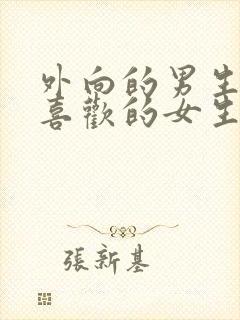 外向的男生
喜歡的女生
張新基